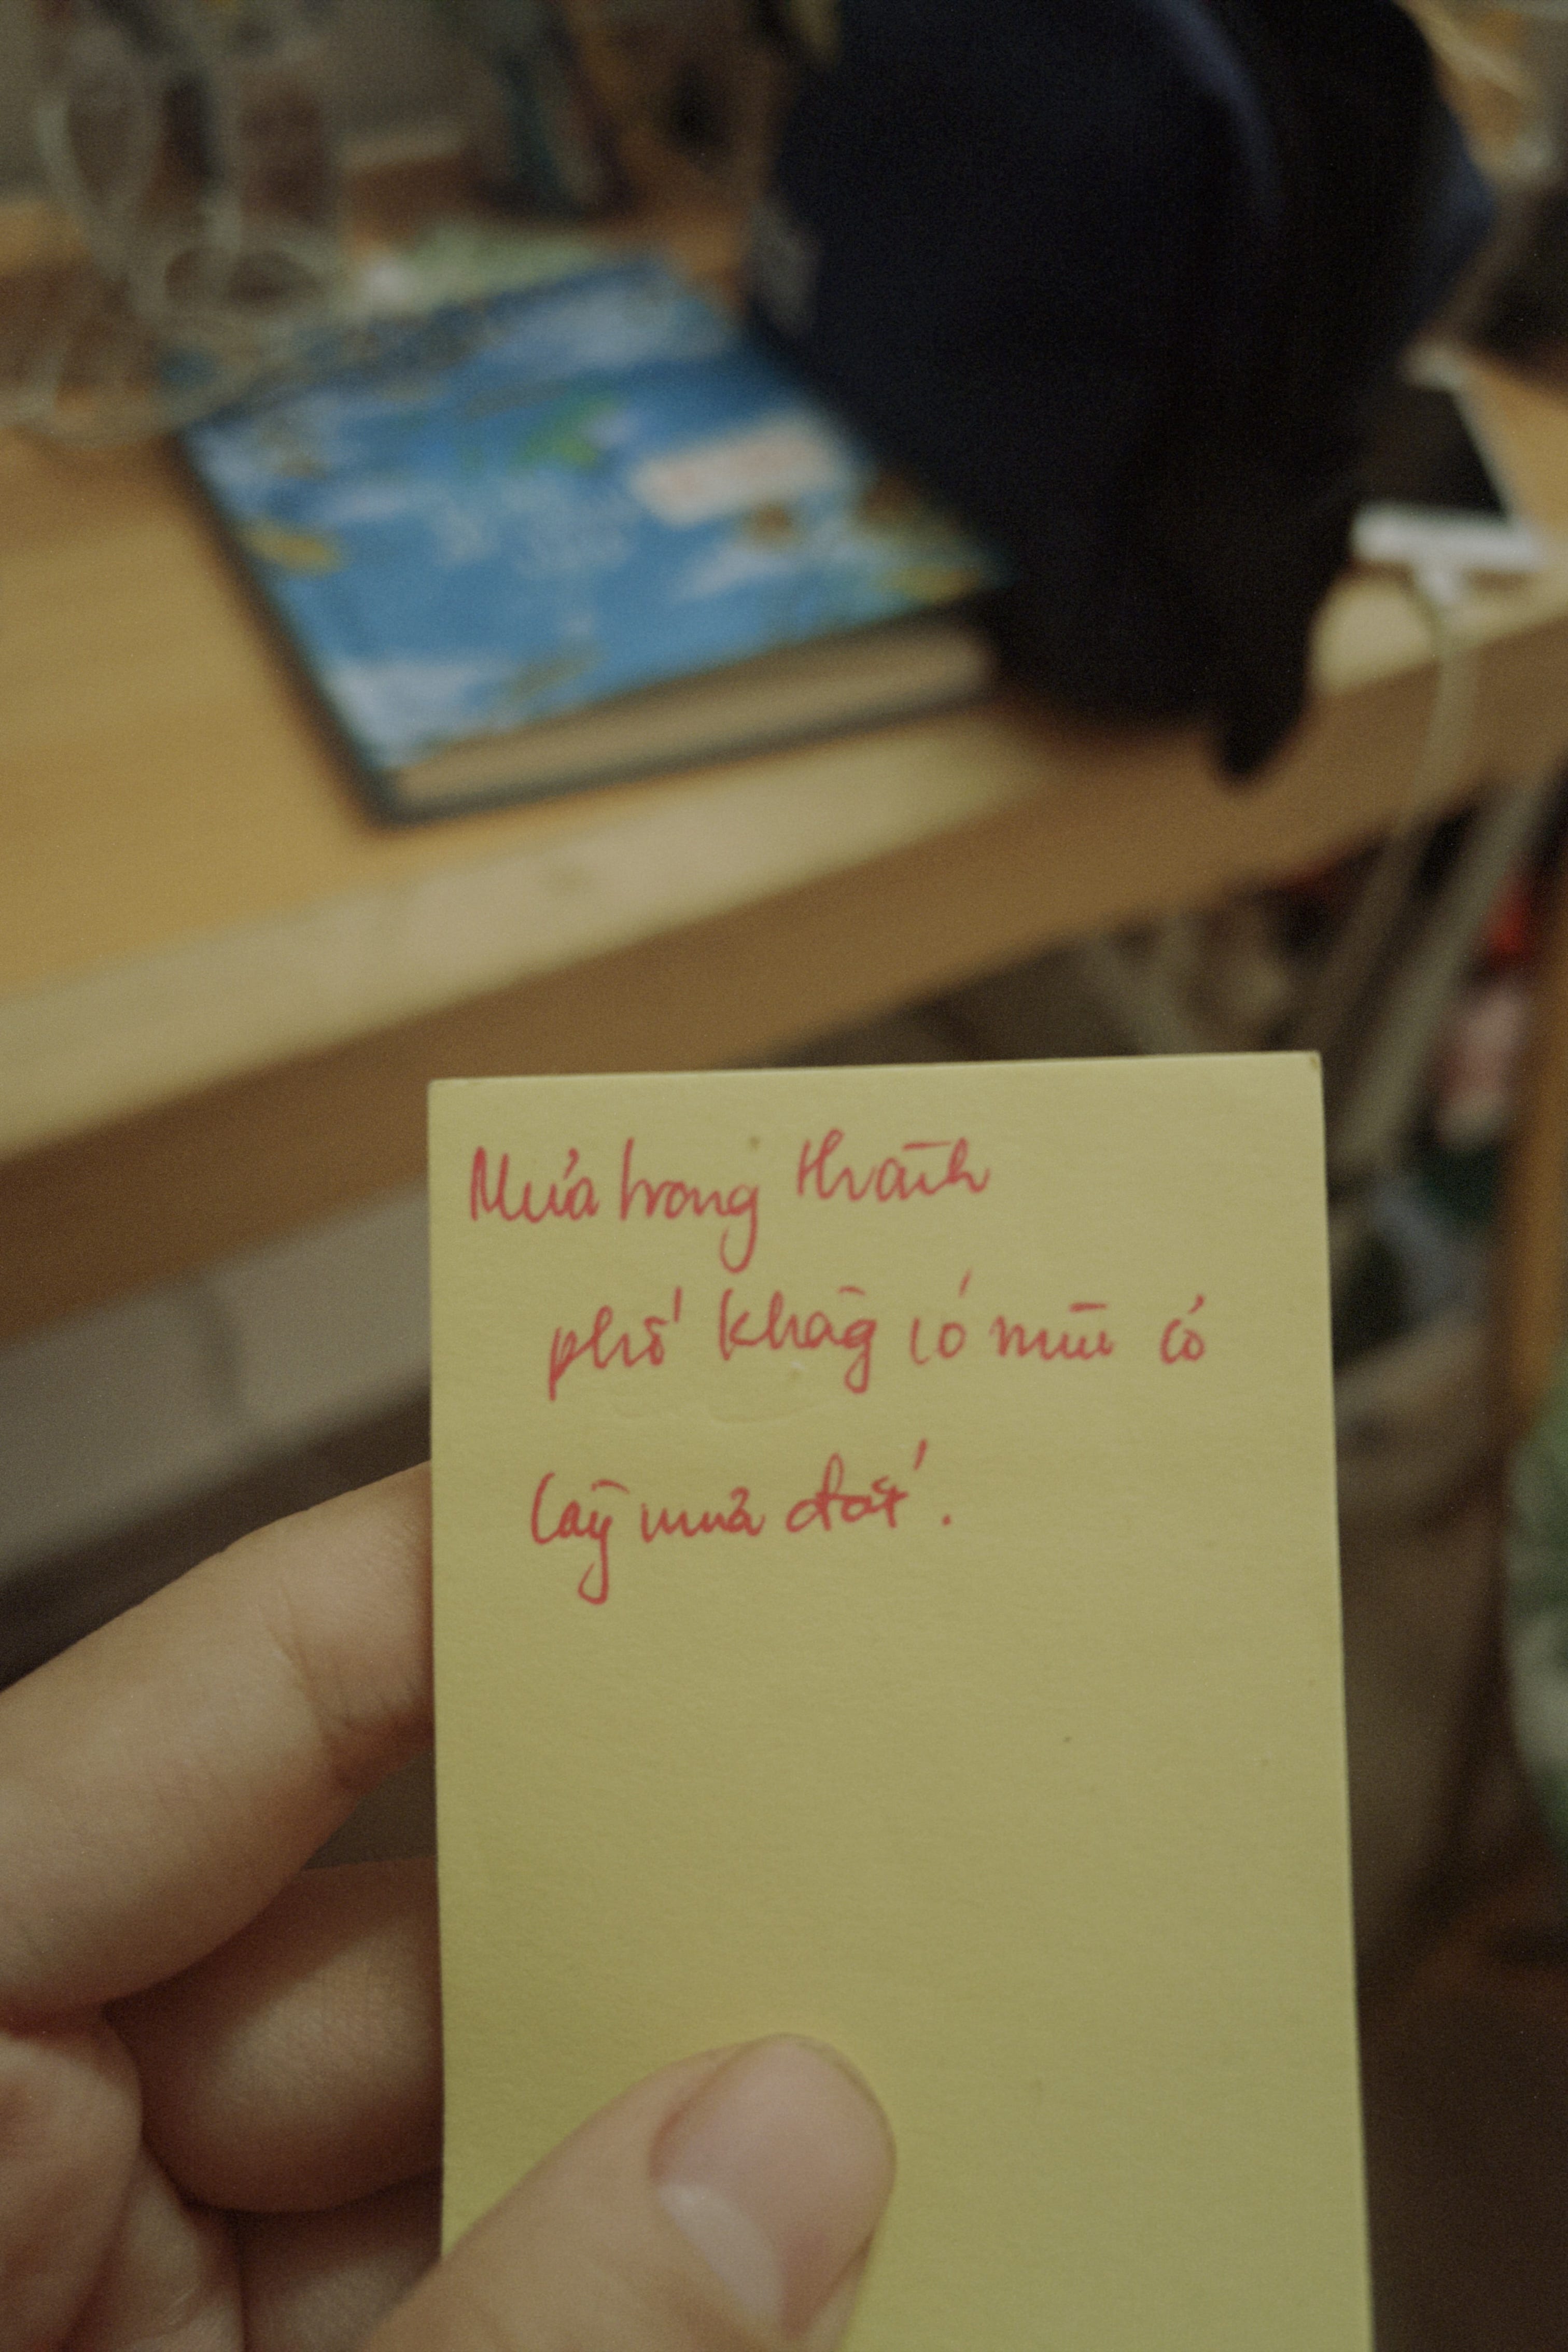 Mưa trong thành
phố không có mùi cỏ
cây mưa đất.